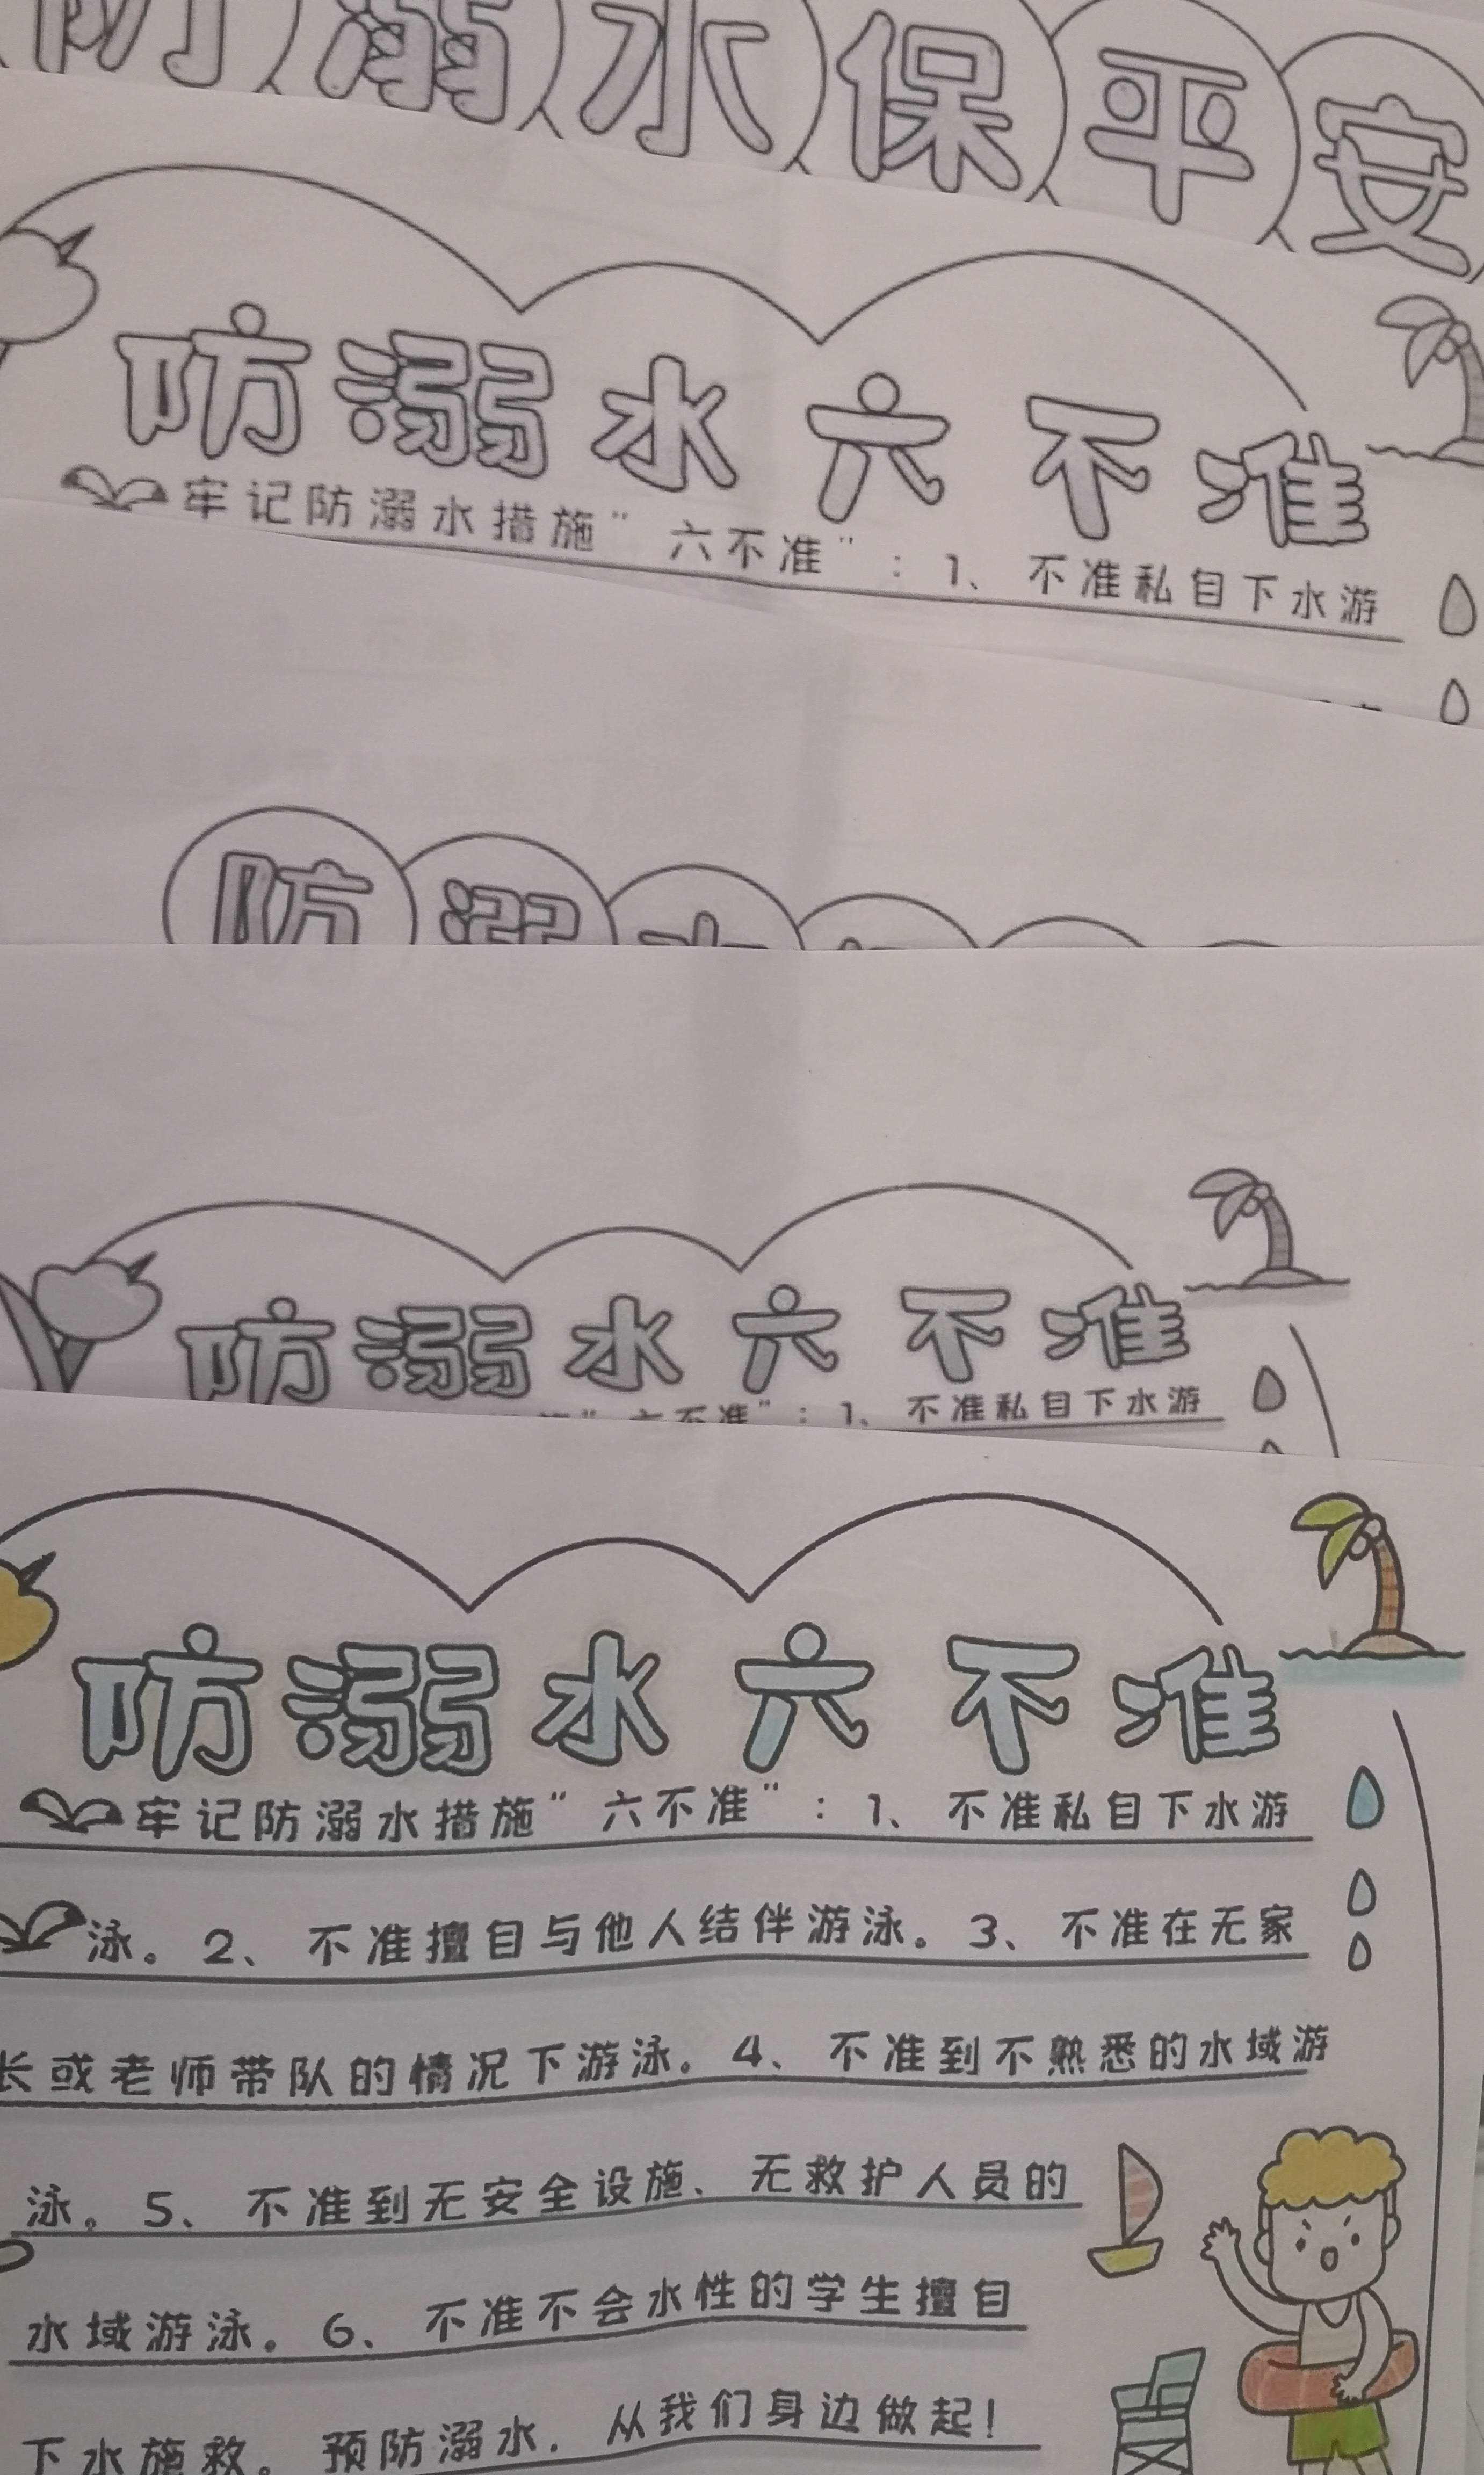 防溺水保平安
防溺水六不准
牢记防溺水措施“六不准”：1、不准私自下水游
防溺
防溺水六不准
六不准”：1、不准私自下水游
防溺水六不准
牢记防溺水措施“六不准”：1、不准私自下水游
泳。2、不准擅自与他人结伴游泳。3、不准在无家
长或老师带队的情况下游泳。4、不准到不熟悉的水域游
泳。5、不准到无安全设施、无救护人员的
水域游泳。6、不准不会水性的学生擅自
下水施救。预防溺水，从我们身边做起！